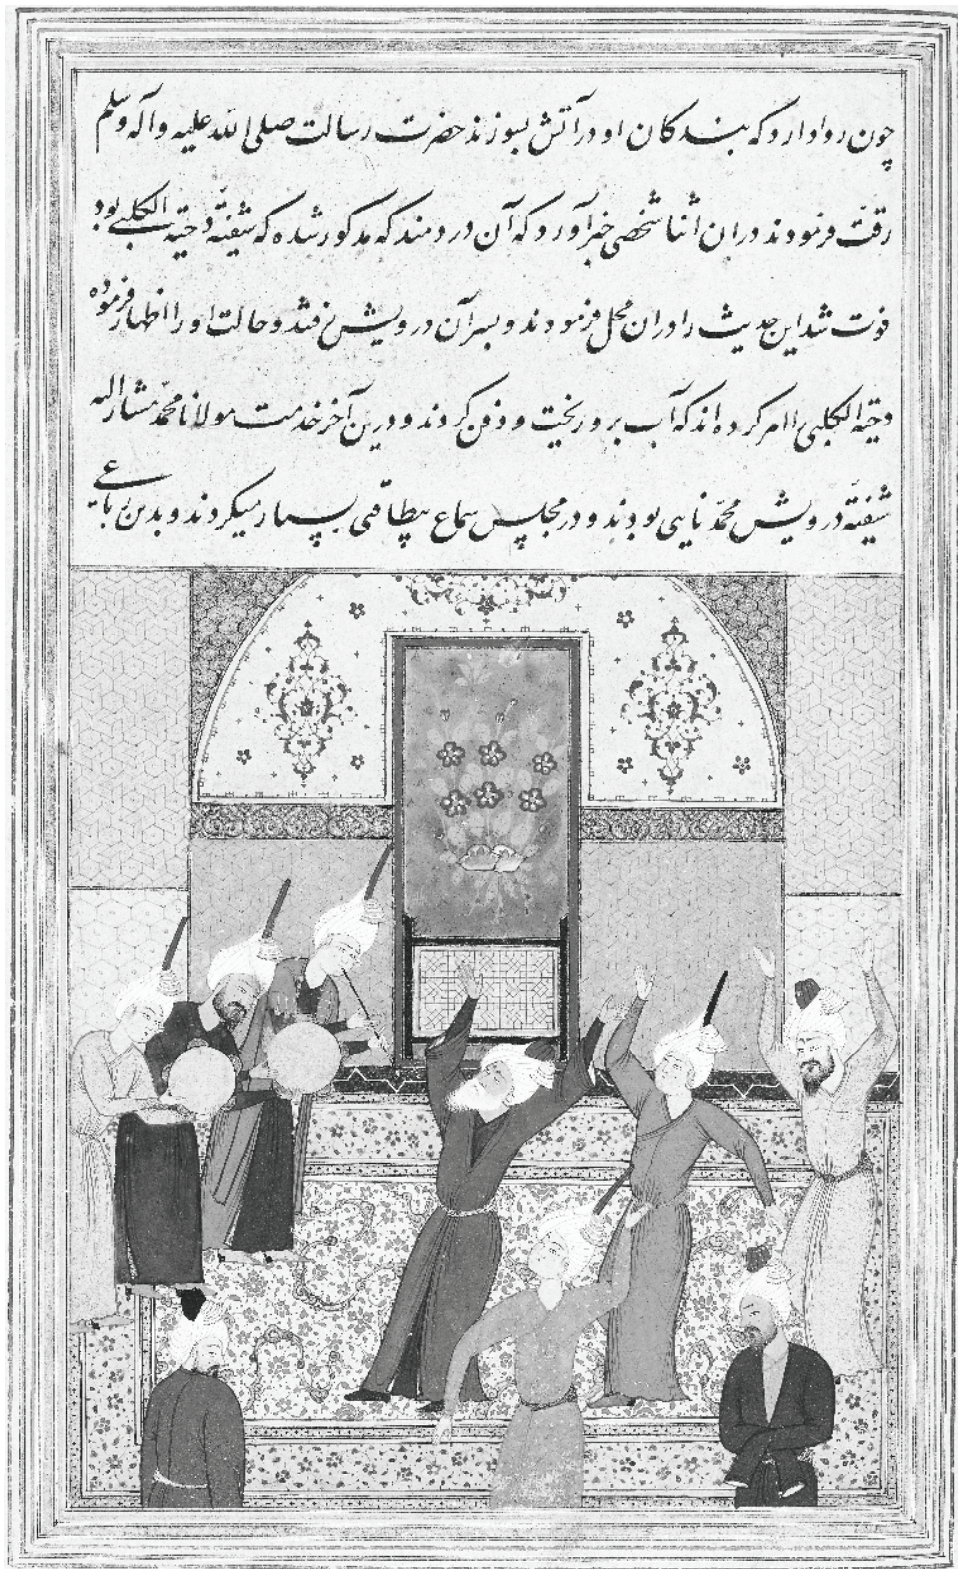 چون روا دارد که بندکان او در آتش بسوزند حضرت رسالت صلی الله علیه و آله وسلم
رقت فرمودند دران اثنا شخصی خبر آورد که آن دردمند که مذکور شد که شیفتهٔ دحیة الکلبی بود
فوت شد این حدیث را دران محل فرمودند و بسر آن درویش رفتند و حالت او را اظهار فرموده
دحیة الکلبی را امر کرده اند که آب برو ریخت و دفن کردند و درین آخر خدمت مولانا محمد مشار الیه
شیفتهٔ درویش محمد نایی بودند و در مجلس سماع بیطاقتی بسیار میکردند و بدین رباعی